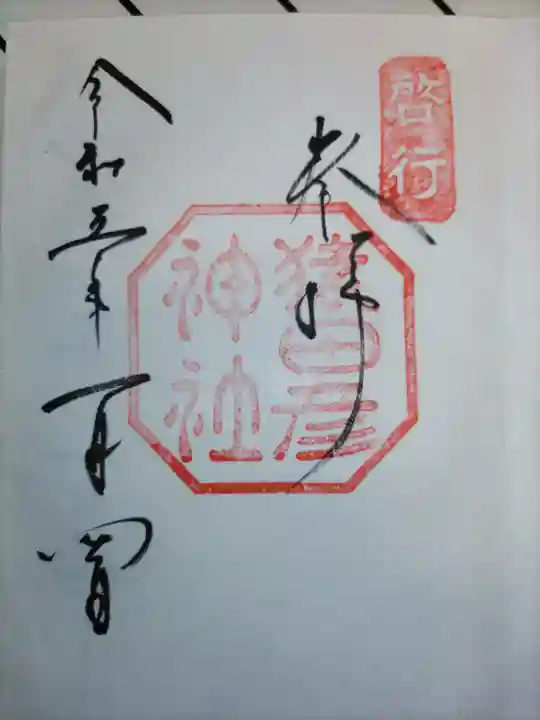 啓行
奉拝
猿田彦
神社
令和五年一月四日